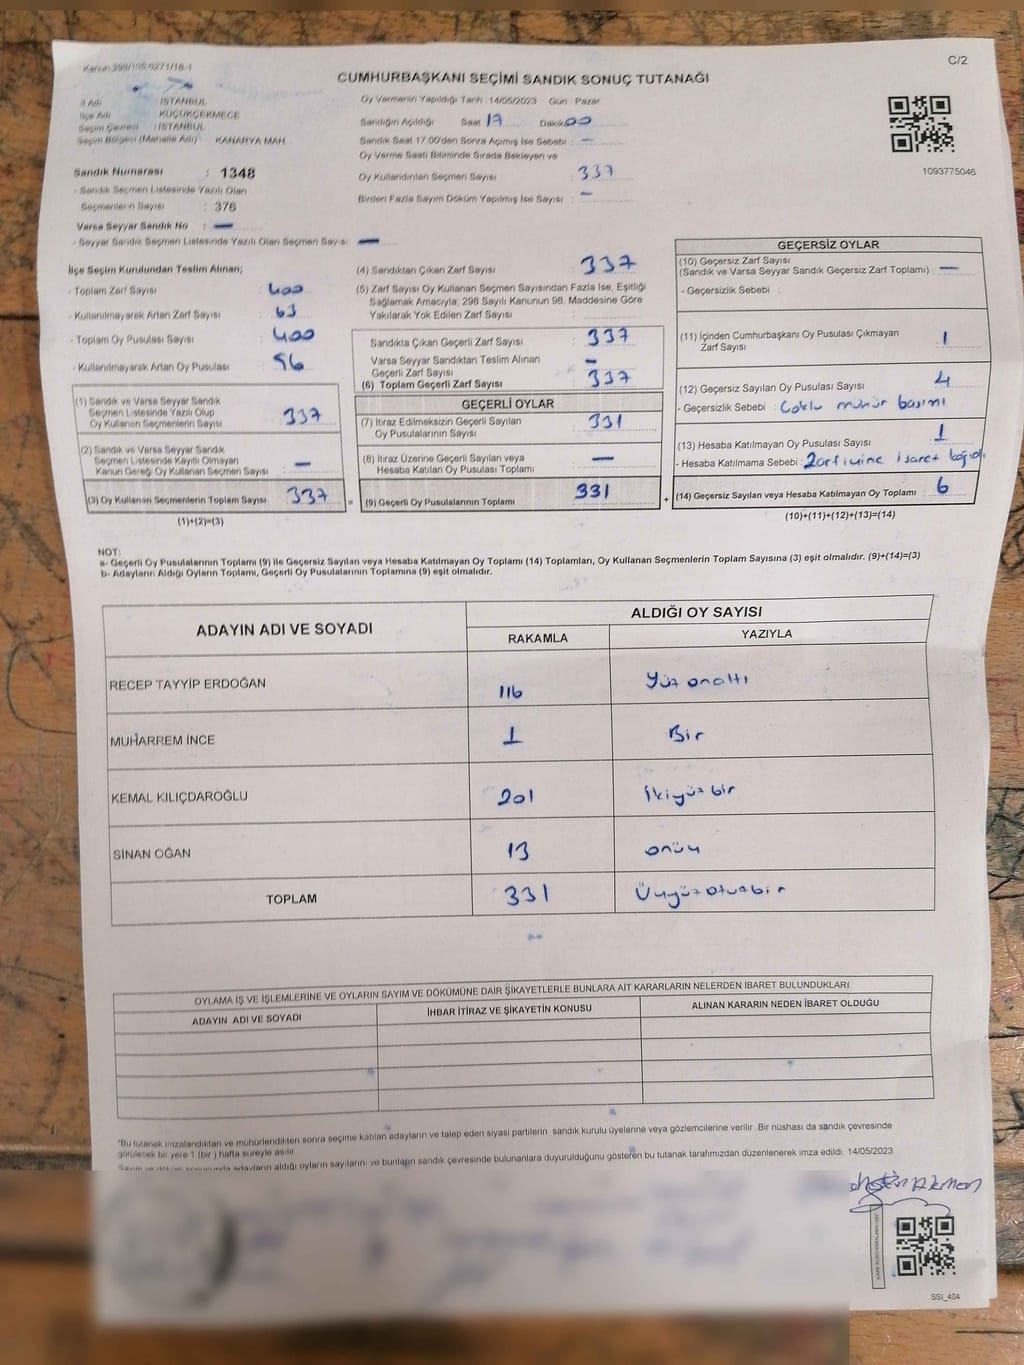 Kanun:298/105-0271/16-1
C/2
CUMHURBAŞKANI SEÇİMİ SANDIK SONUÇ TUTANAĞI
İl Adı : İSTANBUL
İlçe Adı : KÜÇÜKÇEKMECE
Seçim Çevresi : İSTANBUL
Seçim Bölgesi (Mahalle Adı) : KANARYA MAH.
Oy Vermenin Yapıldığı Tarih : 14/05/2023 Gün : Pazar
Sandığın Açıldığı Saat 17 Dakika 00
Sandık Saat 17.00'den Sonra Açılmış İse Sebebi : —
Oy Verme Saati Bitiminde Sırada Bekleyen ve
Oy Kullandırılan Seçmen Sayısı : 337
Birden Fazla Sayım Döküm Yapılmış İse Sayısı : —
1093775046
Sandık Numarası : 1348
- Sandık Seçmen Listesinde Yazılı Olan
Seçmenlerin Sayısı : 376
Varsa Seyyar Sandık No : —
- Seyyar Sandık Seçmen Listesinde Yazılı Olan Seçmen Sayısı: —
İlçe Seçim Kurulundan Teslim Alınan;
- Toplam Zarf Sayısı : 400
- Kullanılmayarak Artan Zarf Sayısı : 63
- Toplam Oy Pusulası Sayısı : 400
- Kullanılmayarak Artan Oy Pusulası :
(1) Sandık ve Varsa Seyyar Sandık
Seçmen Listesinde Yazılı Olup
Oy Kullanan Seçmenlerin Sayısı : 337
(2) Sandık ve Varsa Seyyar Sandık
Seçmen Listesinde Kayıtlı Olmayan
Kanun Gereği Oy Kullanan Seçmen Sayısı : —
(3) Oy Kullanan Seçmenlerin Toplam Sayısı : 337 =
(1)+(2)=(3)
(4) Sandıktan Çıkan Zarf Sayısı : 337
(5) Zarf Sayısı Oy Kullanan Seçmen Sayısından Fazla İse, Eşitliği
Sağlamak Amacıyla; 298 Sayılı Kanunun 98. Maddesine Göre
Yakılarak Yok Edilen Zarf Sayısı :
Sandıkta Çıkan Geçerli Zarf Sayısı : 337
Varsa Seyyar Sandıktan Teslim Alınan
Geçerli Zarf Sayısı : —
(6) Toplam Geçerli Zarf Sayısı : 337
GEÇERLİ OYLAR
(7) İtiraz Edilmeksizin Geçerli Sayılan
Oy Pusulalarının Sayısı : 331
(8) İtiraz Üzerine Geçerli Sayılan veya
Hesaba Katılan Oy Pusulası Toplamı : —
(9) Geçerli Oy Pusulalarının Toplamı : 331 +
GEÇERSİZ OYLAR
(10) Geçersiz Zarf Sayısı
(Sandık ve Varsa Seyyar Sandık Geçersiz Zarf Toplamı) : —
- Geçersizlik Sebebi :
(11) İçinden Cumhurbaşkanı Oy Pusulası Çıkmayan
Zarf Sayısı : 1
(12) Geçersiz Sayılan Oy Pusulası Sayısı : 4
- Geçersizlik Sebebi : Çoklu mühür basımı
(13) Hesaba Katılmayan Oy Pusulası Sayısı : 1
- Hesaba Katılmama Sebebi : işaret
(14) Geçersiz Sayılan veya Hesaba Katılmayan Oy Toplamı : 6
(10)+(11)+(12)+(13)=(14)
NOT:
a- Geçerli Oy Pusulalarının Toplamı (9) ile Geçersiz Sayılan veya Hesaba Katılmayan Oy Toplamı (14) Toplamları, Oy Kullanan Seçmenlerin Toplam Sayısına (3) eşit olmalıdır. (9)+(14)=(3)
b- Adayların Aldığı Oyların Toplamı, Geçerli Oy Pusulalarının Toplamına (9) eşit olmalıdır.
ADAYIN ADI VE SOYADI
ALDIĞI OY SAYISI
RAKAMLA YAZIYLA
RECEP TAYYİP ERDOĞAN 116 Yüz onaltı
MUHARREM İNCE 1 Bir
KEMAL KILIÇDAROĞLU 201 İkiyüz bir
SİNAN OĞAN 13 onüç
TOPLAM 331 Üçyüzotuzbir
OYLAMA İŞ VE İŞLEMLERİNE VE OYLARIN SAYIM VE DÖKÜMÜNE DAİR ŞİKAYETLERLE BUNLARA AİT KARARLARIN NELERDEN İBARET BULUNDUKLARI
ADAYIN ADI VE SOYADI İHBAR İTİRAZ VE ŞİKAYETİN KONUSU ALINAN KARARIN NEDEN İBARET OLDUĞU
*Bu tutanak imzalandıktan ve mühürlendikten sonra seçime katılan adayların ve talep eden siyasi partilerin sandık kurulu üyelerine veya gözlemcilerine verilir. Bir nüshası da sandık çevresinde
görülecek bir yere 1 (bir) hafta süreyle asılır.
Sayım ve döküm sonucunda adayların aldığı oyların sayılarını ve bunların sandık çevresinde bulunanlara duyurulduğunu gösteren bu tutanak tarafımızdan düzenlenerek imza edildi. 14/05/2023
SSI_404